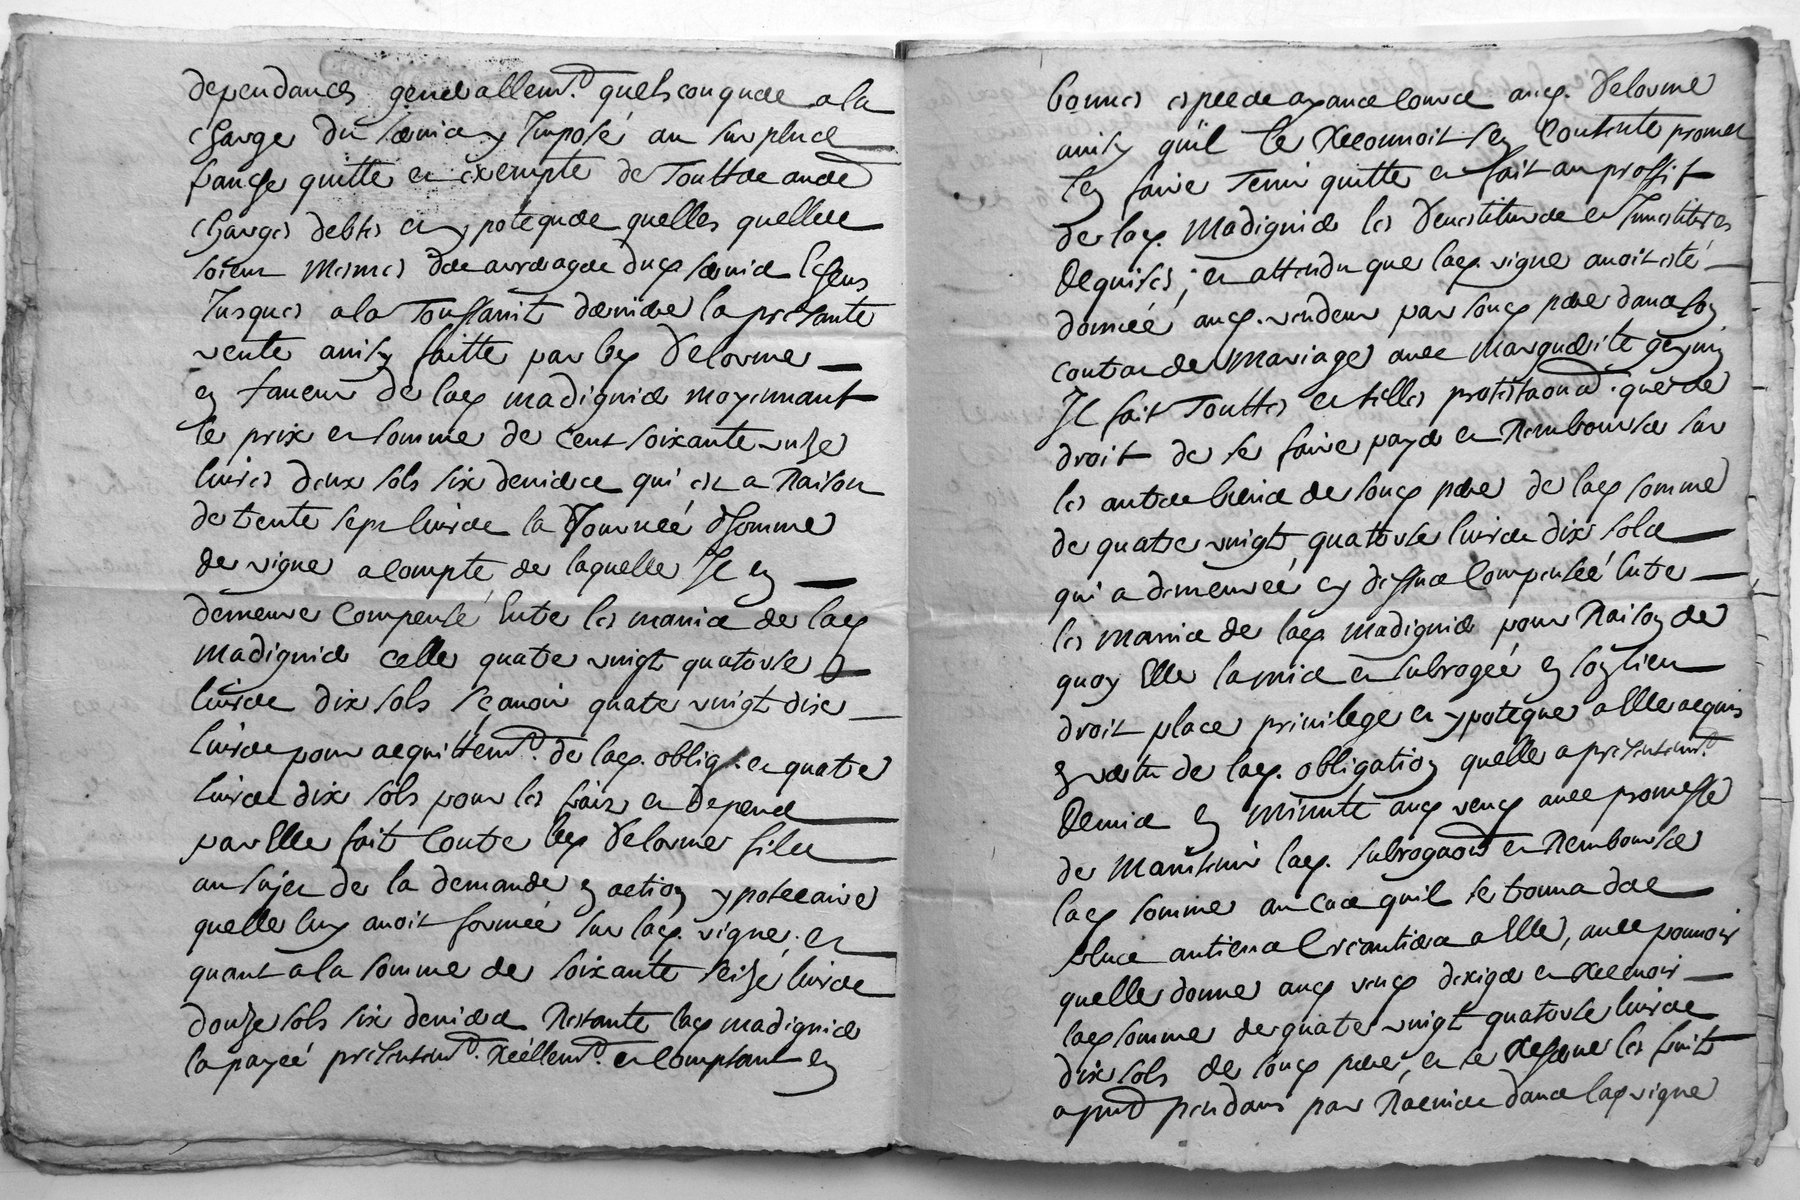 dependances generallemt. quelsconques a la
charge du servis y Imposé au surplus
franche quitte et exempte de Touttes autres
charges debtes et ypoteques quelles quelles
soient mesmes des arrerages dud servis echeus
Jusques a la Toussaint derniere la presante
vente ainsy faitte par led Delorme
en faveur de lad madignier moyennant
le prix et somme de cent soixante unze
livres deux sols six deniers qui est a Raison
de trente sept livres la Journeé d'homme
de vigne a compte de laquelle Il en
demeure compensé Entre les mains de lad
madignier celle quatre vingt quatorse
livres dix sols sçavoir quatre vingt dix
livres pour acquittemt. de lad. oblig. et quatre
livres dix sols pour les frais et depens
par Elle fait Contre led Delorme fils
au sujet de la demande en action ypotecaire
quelle luy avoit formeé sur lad. vigne. et
quant a la somme de soixante seize livres
douze sols six deniers Restante lad madignier
la payeé presentemt. réellemt. et comptant en
bonnes especes ayant cours aud. Delorme
ainsy qu'il le reconnoit sen contente promet
len faire Tenir quitte et fait au proffit
de lad. Madignier les Devestitures et Investitures
Requises; et attendu que lad. vigne avoit esté
donneé aud. vendeur par soud pere dans son
contrat de Mariage avec Marguerite
Il fait Touttes et telles protestaons. que de
droit de se faire payer et Rembourser sur
les autres biens de soud pere de lad somme
de quatre vingt quatorse livres dix sols
qui a demeureé cy dessus Compenseé Entre
les mains de lad madignier pour Raison de
quoy Elle la mis et subrogeé en son lieu
droit place privilege et ypoteque a Elle acquis
en vertu de lad. obligation quelle a presentemt.
Remis en minute aud vend avec promesse
de Maintenir lad. subrogaon et Rembourser
lad somme au cas quil se trouva des
plus antiens Creantiers a Elle, avec pouvoir
quelle donne aud vend dexiger et recevoir
lad somme de quatre vingt quatorse livres
dix sols de soud pere, et se reserve les fruits
a pnt pendans par Racines dans lad vigne